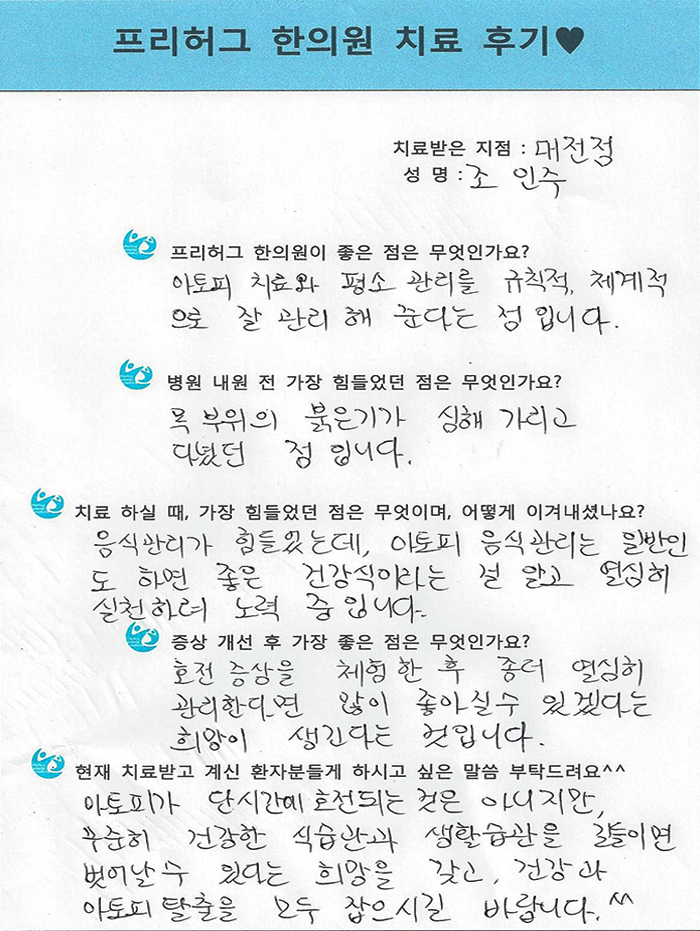 프리허그 한의원 치료 후기♥
치료받은 지점 : 대전점
성 명 : 조 인주
프리허그 한의원이 좋은 점은 무엇인가요?
아토피 치료와 평소 관리를 규칙적, 체계적
으로 잘 관리 해 준다는 점 입니다.
병원 내원 전 가장 힘들었던 점은 무엇인가요?
목 부위의 붉은기가 심해 가리고
다녔던 점 입니다.
치료 하실 때, 가장 힘들었던 점은 무엇이며, 어떻게 이겨내셨나요?
음식관리가 힘들었는데, 아토피 음식관리는 일반인
도 하면 좋은 건강식이라는 걸 알고 열심히
실천하려 노력 중입니다.
증상 개선 후 가장 좋은 점은 무엇인가요?
호전 증상을 체험한 후 좀더 열심히
관리한다면 많이 좋아질수 있겠다는
희망이 생긴다는 것입니다.
현재 치료받고 계신 환자분들게 하시고 싶은 말씀 부탁드려요^^
아토피가 단시간에 호전되는 것은 아니지만,
꾸준히 건강한 식습관과 생활습관을 길들이면
벗어날수 있다는 희망을 갖고, 건강과
아토피 탈출을 모두 잡으시길 바랍니다.^^